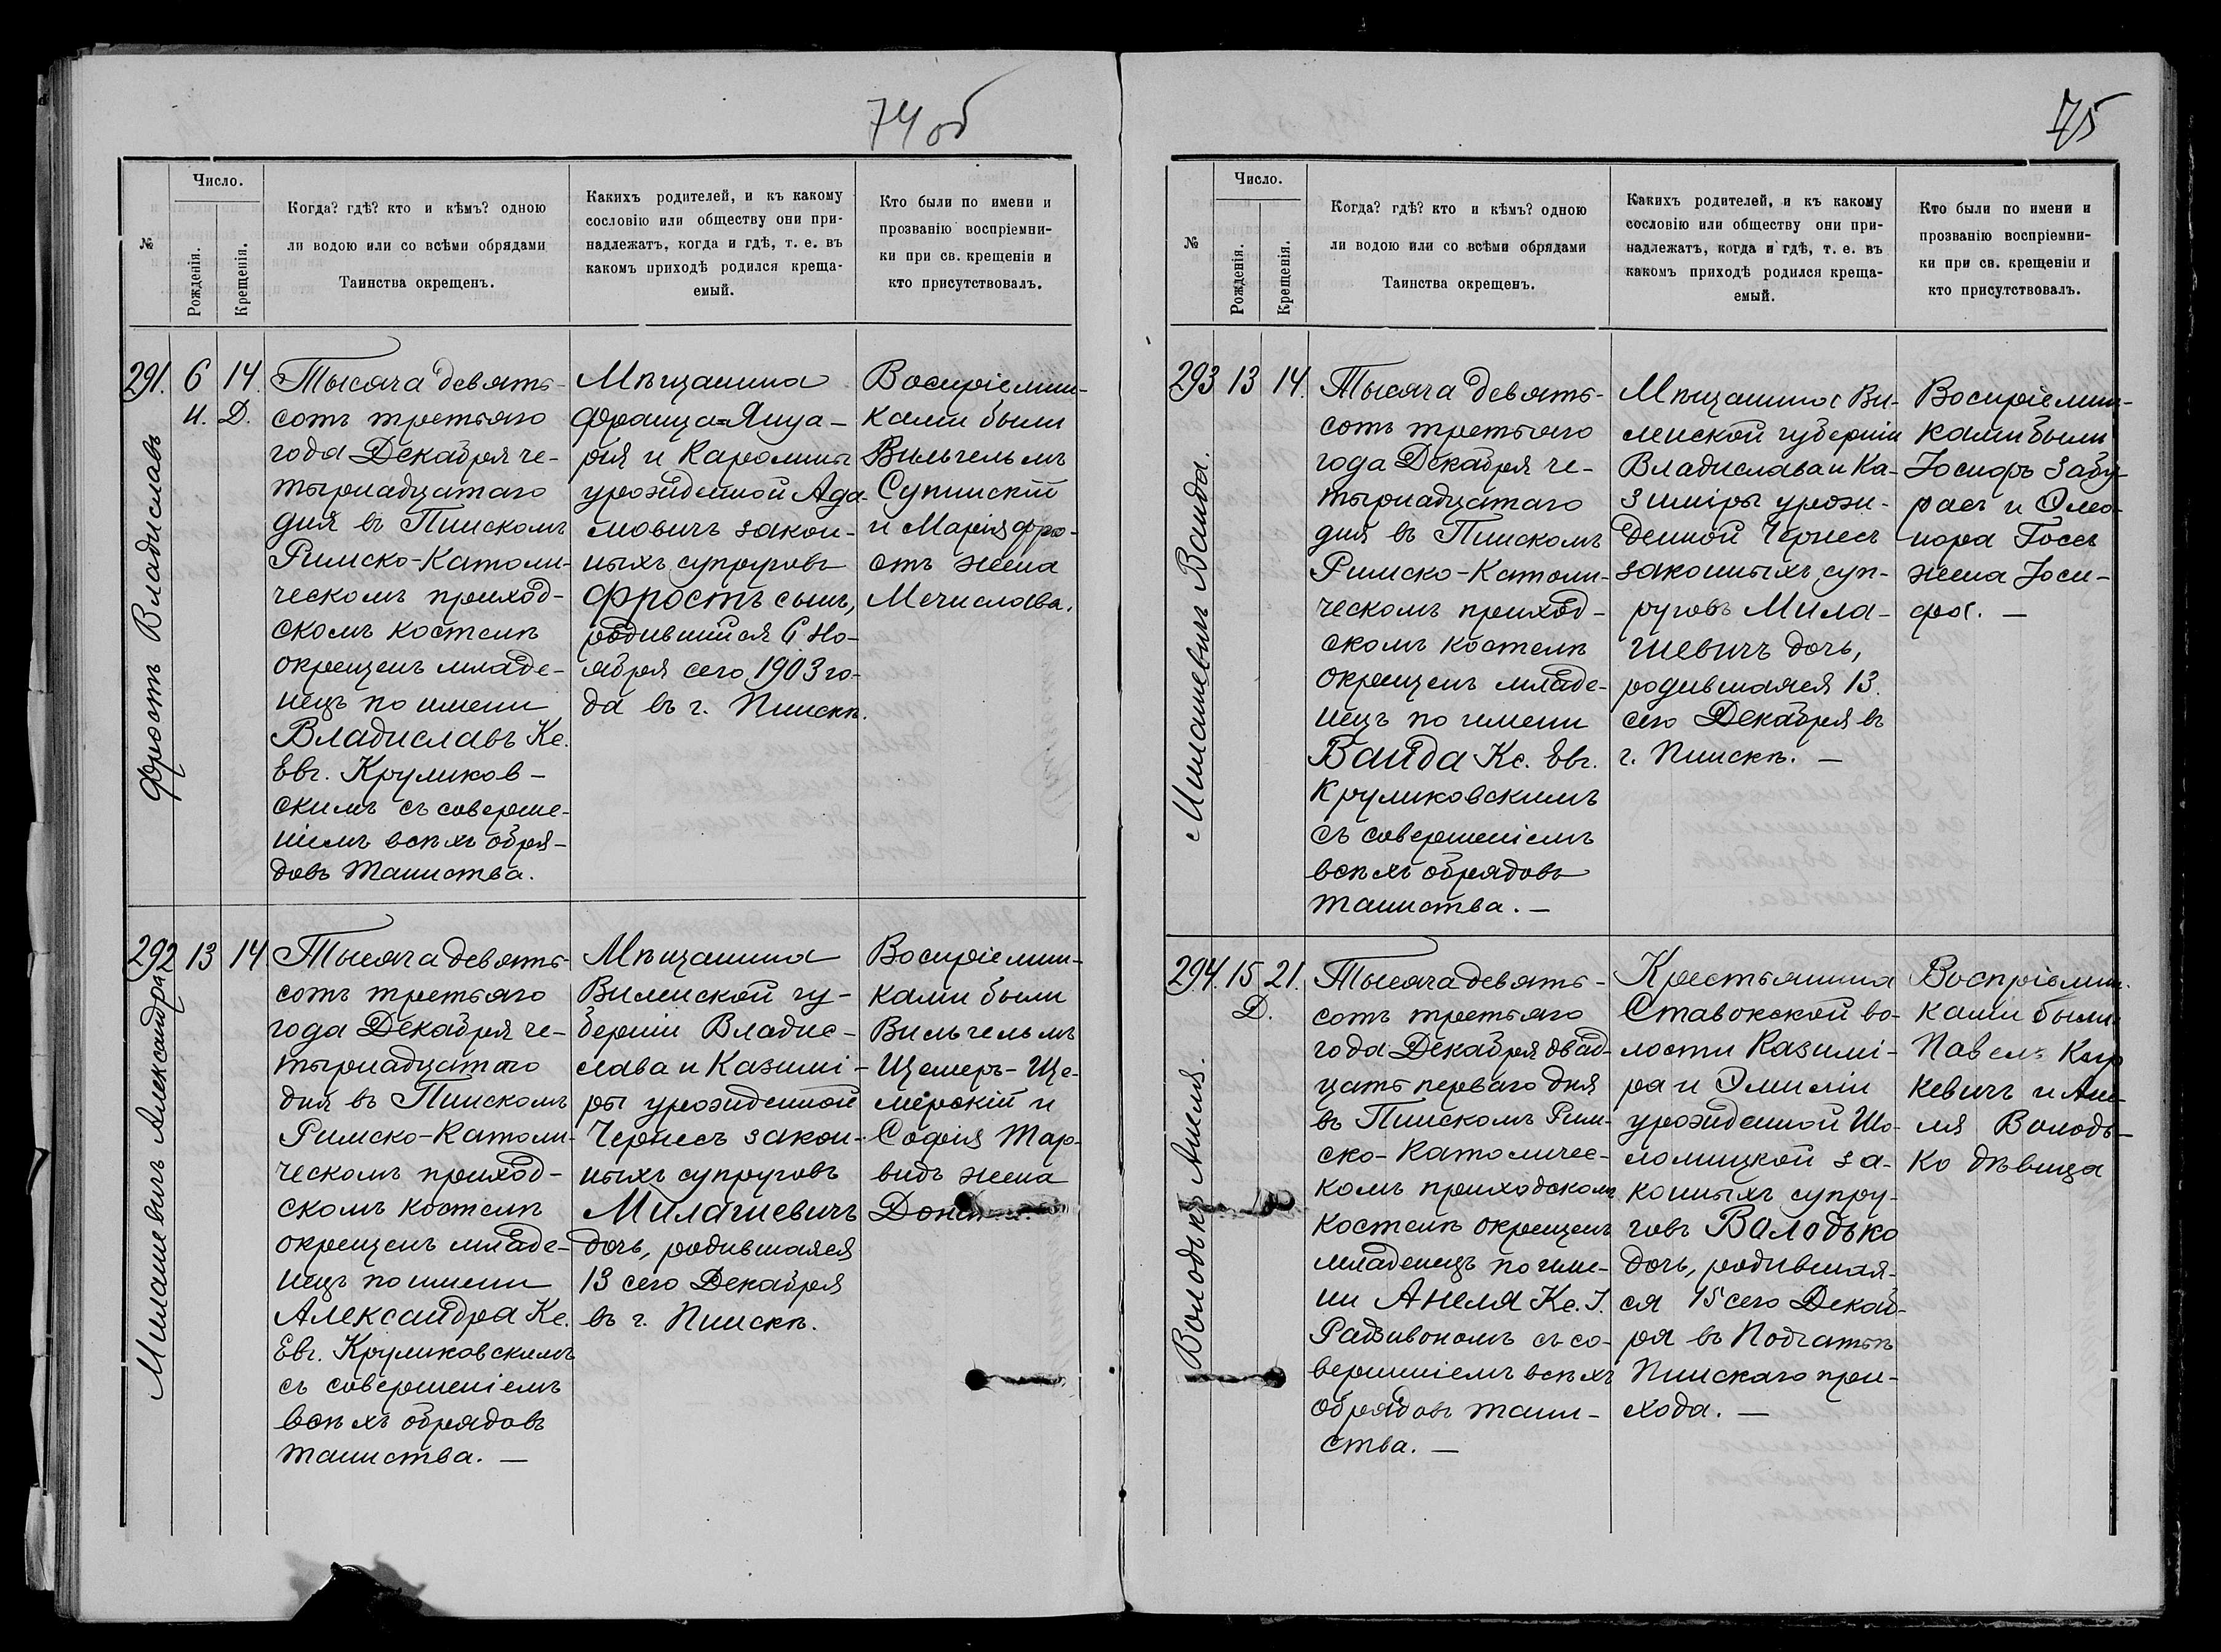 74 об
№
Число.
Рожденія.
Крещенія.
Когда? гдѣ? кто и кѣмъ? одною
ли водою или со всѣми обрядами
Таинства окрещенъ.
Какихъ родителей, и къ какому
сословію или обществу они при-
надлежатъ, когда и гдѣ, т. е. въ
какомъ приходѣ родился креща-
емый.
Кто были по имени и
прозванію воспріемни-
ки при св. крещеніи и
кто присутствовалъ.
291.
Фростъ Владиславъ
6
Н.
14.
Д.
Тысяча девять-
сотъ третьяго
года Декабря че-
тырнадцатаго
дня въ Пинскомъ
Римско-Католи-
ческомъ приход-
скомъ костелѣ
окрещенъ младе-
нецъ по имени
Владиславъ Кс.
Евг. Круликов-
скимъ съ соверше-
ніемъ всѣхъ обря-
довъ таинства.
Мѣщанина
Франца=Януа-
рія и Каролины
урожденной Ада-
мовичъ закон-
ныхъ супруговъ
Фростъ сынъ,
родившійся 6 Но-
ября сего 1903 го-
да въ г. Пинскѣ.
Воспріемни-
ками были
Вильгельмъ
Супинскій
и Марія Фро-
стъ жена
Мечислава.
292
Милашевичъ Александра
13
14.
Тысяча девять-
сотъ третьяго
года Декабря че-
тырнадцатаго
дня въ Пинскомъ
Римско-Католи-
ческомъ приход-
скомъ костелѣ
окрещенъ младе-
нецъ по имени
Александра Кс.
Евг. Круликовскимъ
съ совершеніемъ
всѣхъ обрядовъ
таинства. —
Мѣщанина
Виленской гу-
берніи Владис-
лава и Казимі-
ры урожденной
Чернесъ закон-
ныхъ супруговъ
Милашевичъ
дочь, родившаяся
13 сего Декабря
въ г. Пинскѣ.
Воспріемни-
ками были
Вильгельмъ
Щемеръ-Ще-
мерскій и
Софія Тар-
видъ жена
75
№
Число.
Рожденія.
Крещенія.
Когда? гдѣ? кто и кѣмъ? одною
ли водою или со всѣми обрядами
Таинства окрещенъ.
Какихъ родителей, и къ какому
сословію или обществу они при-
надлежатъ, когда и гдѣ, т. е. въ
какомъ приходѣ родился креща-
емый.
Кто были по имени и
прозванію воспріемни-
ки при св. крещеніи и
кто присутствовалъ.
293
Милашевичъ Ванда.
13
14.
Тысяча девять-
сотъ третьяго
года Декабря че-
тырнадцатаго
дня въ Пинскомъ
Римско-Католи-
ческомъ приход-
скомъ костелѣ
окрещенъ младе-
нецъ по имени
Ванда Кс. Евг.
Круликовскимъ
съ совершеніемъ
всѣхъ обрядовъ
таинства. —
Мѣщанина Ви-
ленской губерніи
Владислава и Ка-
зиміры урож-
денной Чернесъ
законныхъ суп-
руговъ Мила-
шевичъ дочь,
родившаяся 13
сего Декабря въ
г. Пинскѣ. —
Воспріемни-
ками были
Іосифъ Забу-
раев и Элео-
нора Госсъ
жена Іоси-
фа. —
294.
Володько Анеля.
15
Д.
21.
Тысяча девять-
сотъ третьяго
года Декабря двад-
цать перваго дня
въ Пинскомъ Рим-
ско-Католичес-
комъ приходскомъ
костелѣ окрещенъ
младенецъ по име-
ни Анеля Кс. І.
Радзивономъ съ со-
вершеніемъ всѣхъ
обрядовъ таин-
ства. —
Крестьянина
Ставокской во-
лости Казимі-
ра и Эмиліи
урожденной Шо-
ломицкой за-
конныхъ супру-
говъ Володько
дочь, родившая-
ся 15 сего Декаб-
ря въ Подгатьѣ
Пинскаго при-
хода. —
Воспріемни-
ками были
Павелъ
кевичъ и Ане-
ля Володь-
ко дѣвица